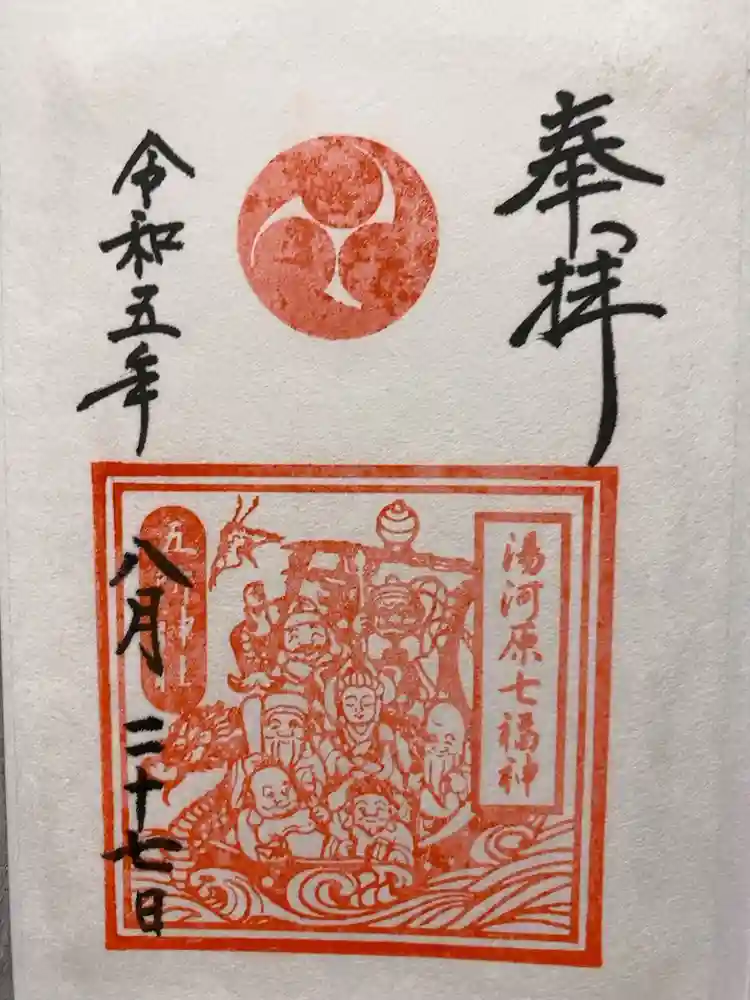 奉拝
湯河原七福神
令和五年
八月二十七日